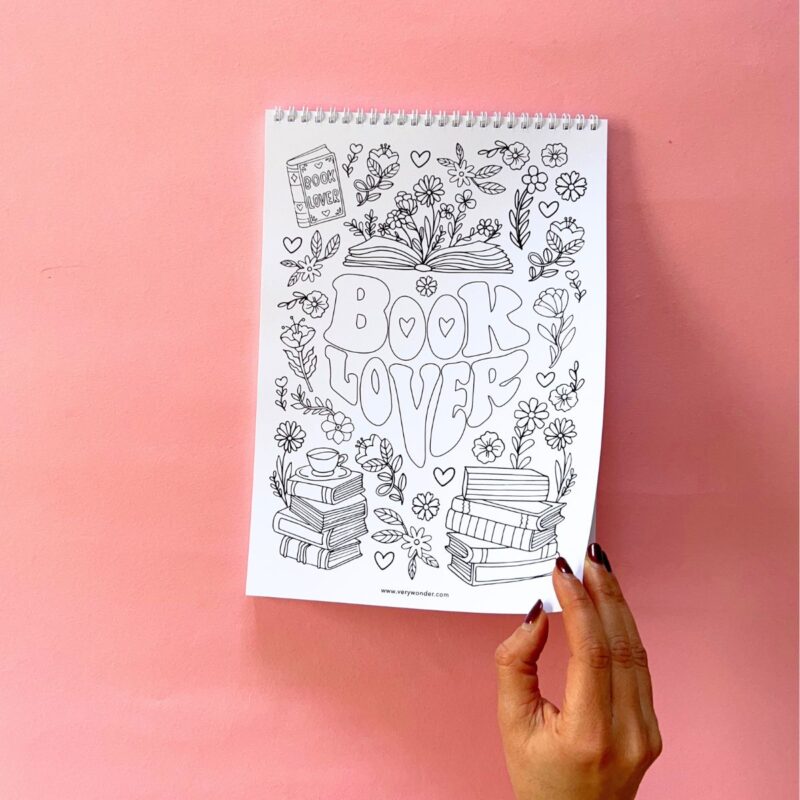 BOOK
LOVER
BOOK
LOVER
www.verywonder.com